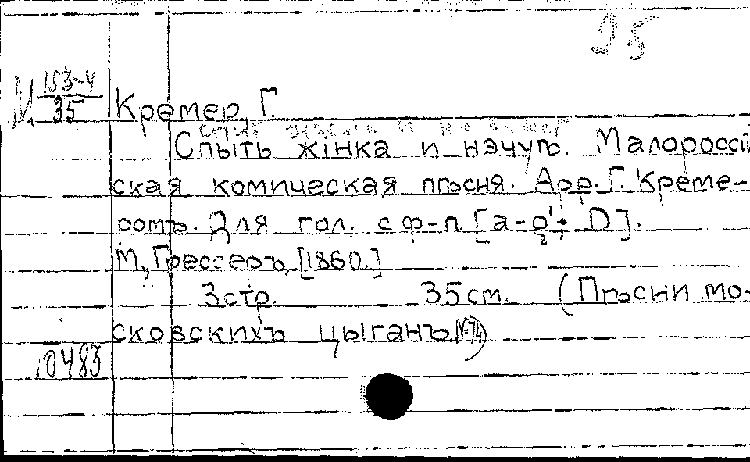 25
М 153-4
35
Кремер, Г.
Спыть жінка и нэчуть. Малороссій
ская комическая пѣсня. Арр. Г. Креме-
ромъ. Для гол. с ф-п [a-
D].
М., Грессеръ, [1860.]
3 стр. 35 см. (Пѣсни мо-
сковскихъ цыганъ
10483